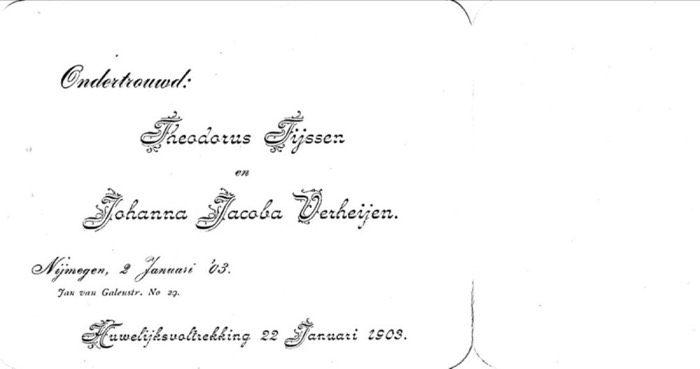 Ondertrouwd:
Theodorus Tijssen
en
Johanna Jacoba Verheijen.
Nijmegen, 2 Januari '03.
Jan van Galenstr. No 29.
Huwelijksvoltrekking 22 Januari 1903.